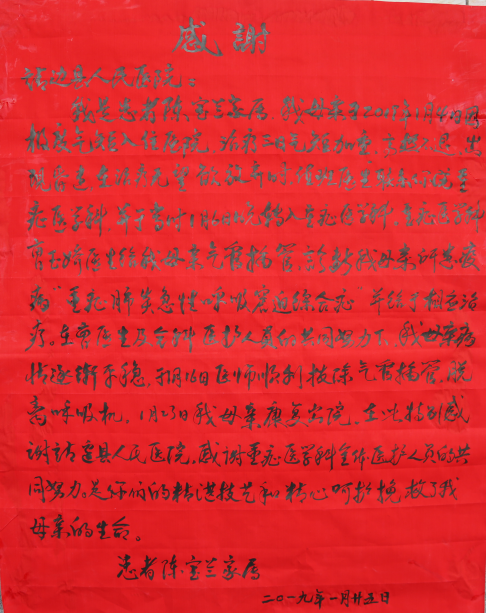 感謝
靖边县人民医院:
我是患者陈宝兰家属,我母亲在年1月4日因
极度气短入住医院,治疗二日气短加重,
院 生活无望 放弃 但 医生 重
症医学科,于当时1月6日 转入重症医学科,重症医学科
曹 医生给我母亲气管插管,诊断我母亲所患疾
病"重症肺炎急性呼吸窘迫综合症"并给予相应治
疗。在曹医生及全科医护人员的共同努力下,我母亲病
情逐渐平稳,于1月16日 顺利拔除气管插管,脱
离呼吸机,1月23日我母亲康复出院,在此特别感
谢靖边县人民医院,感谢重症医学科全体医护人员的共
同努力。是你们的精湛技艺和精心呵护挽救了我
母亲的生命。
患者陈宝兰家属
二〇一九年一月廿五日